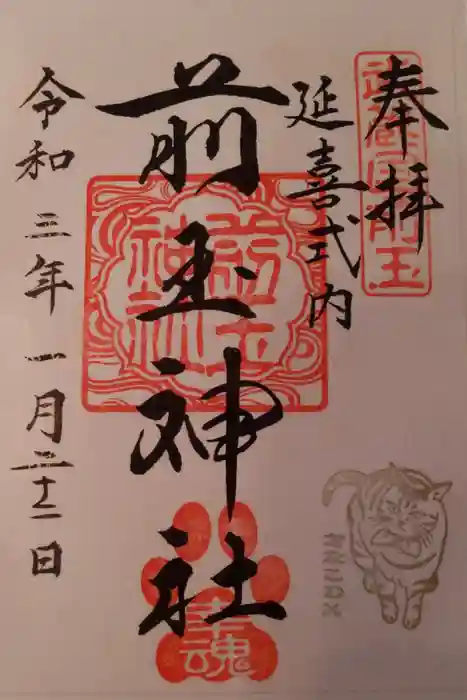 奉拝
武蔵国前玉
延喜式内
前玉神社
前玉
神社
幸魂
令和三年一月二十二日